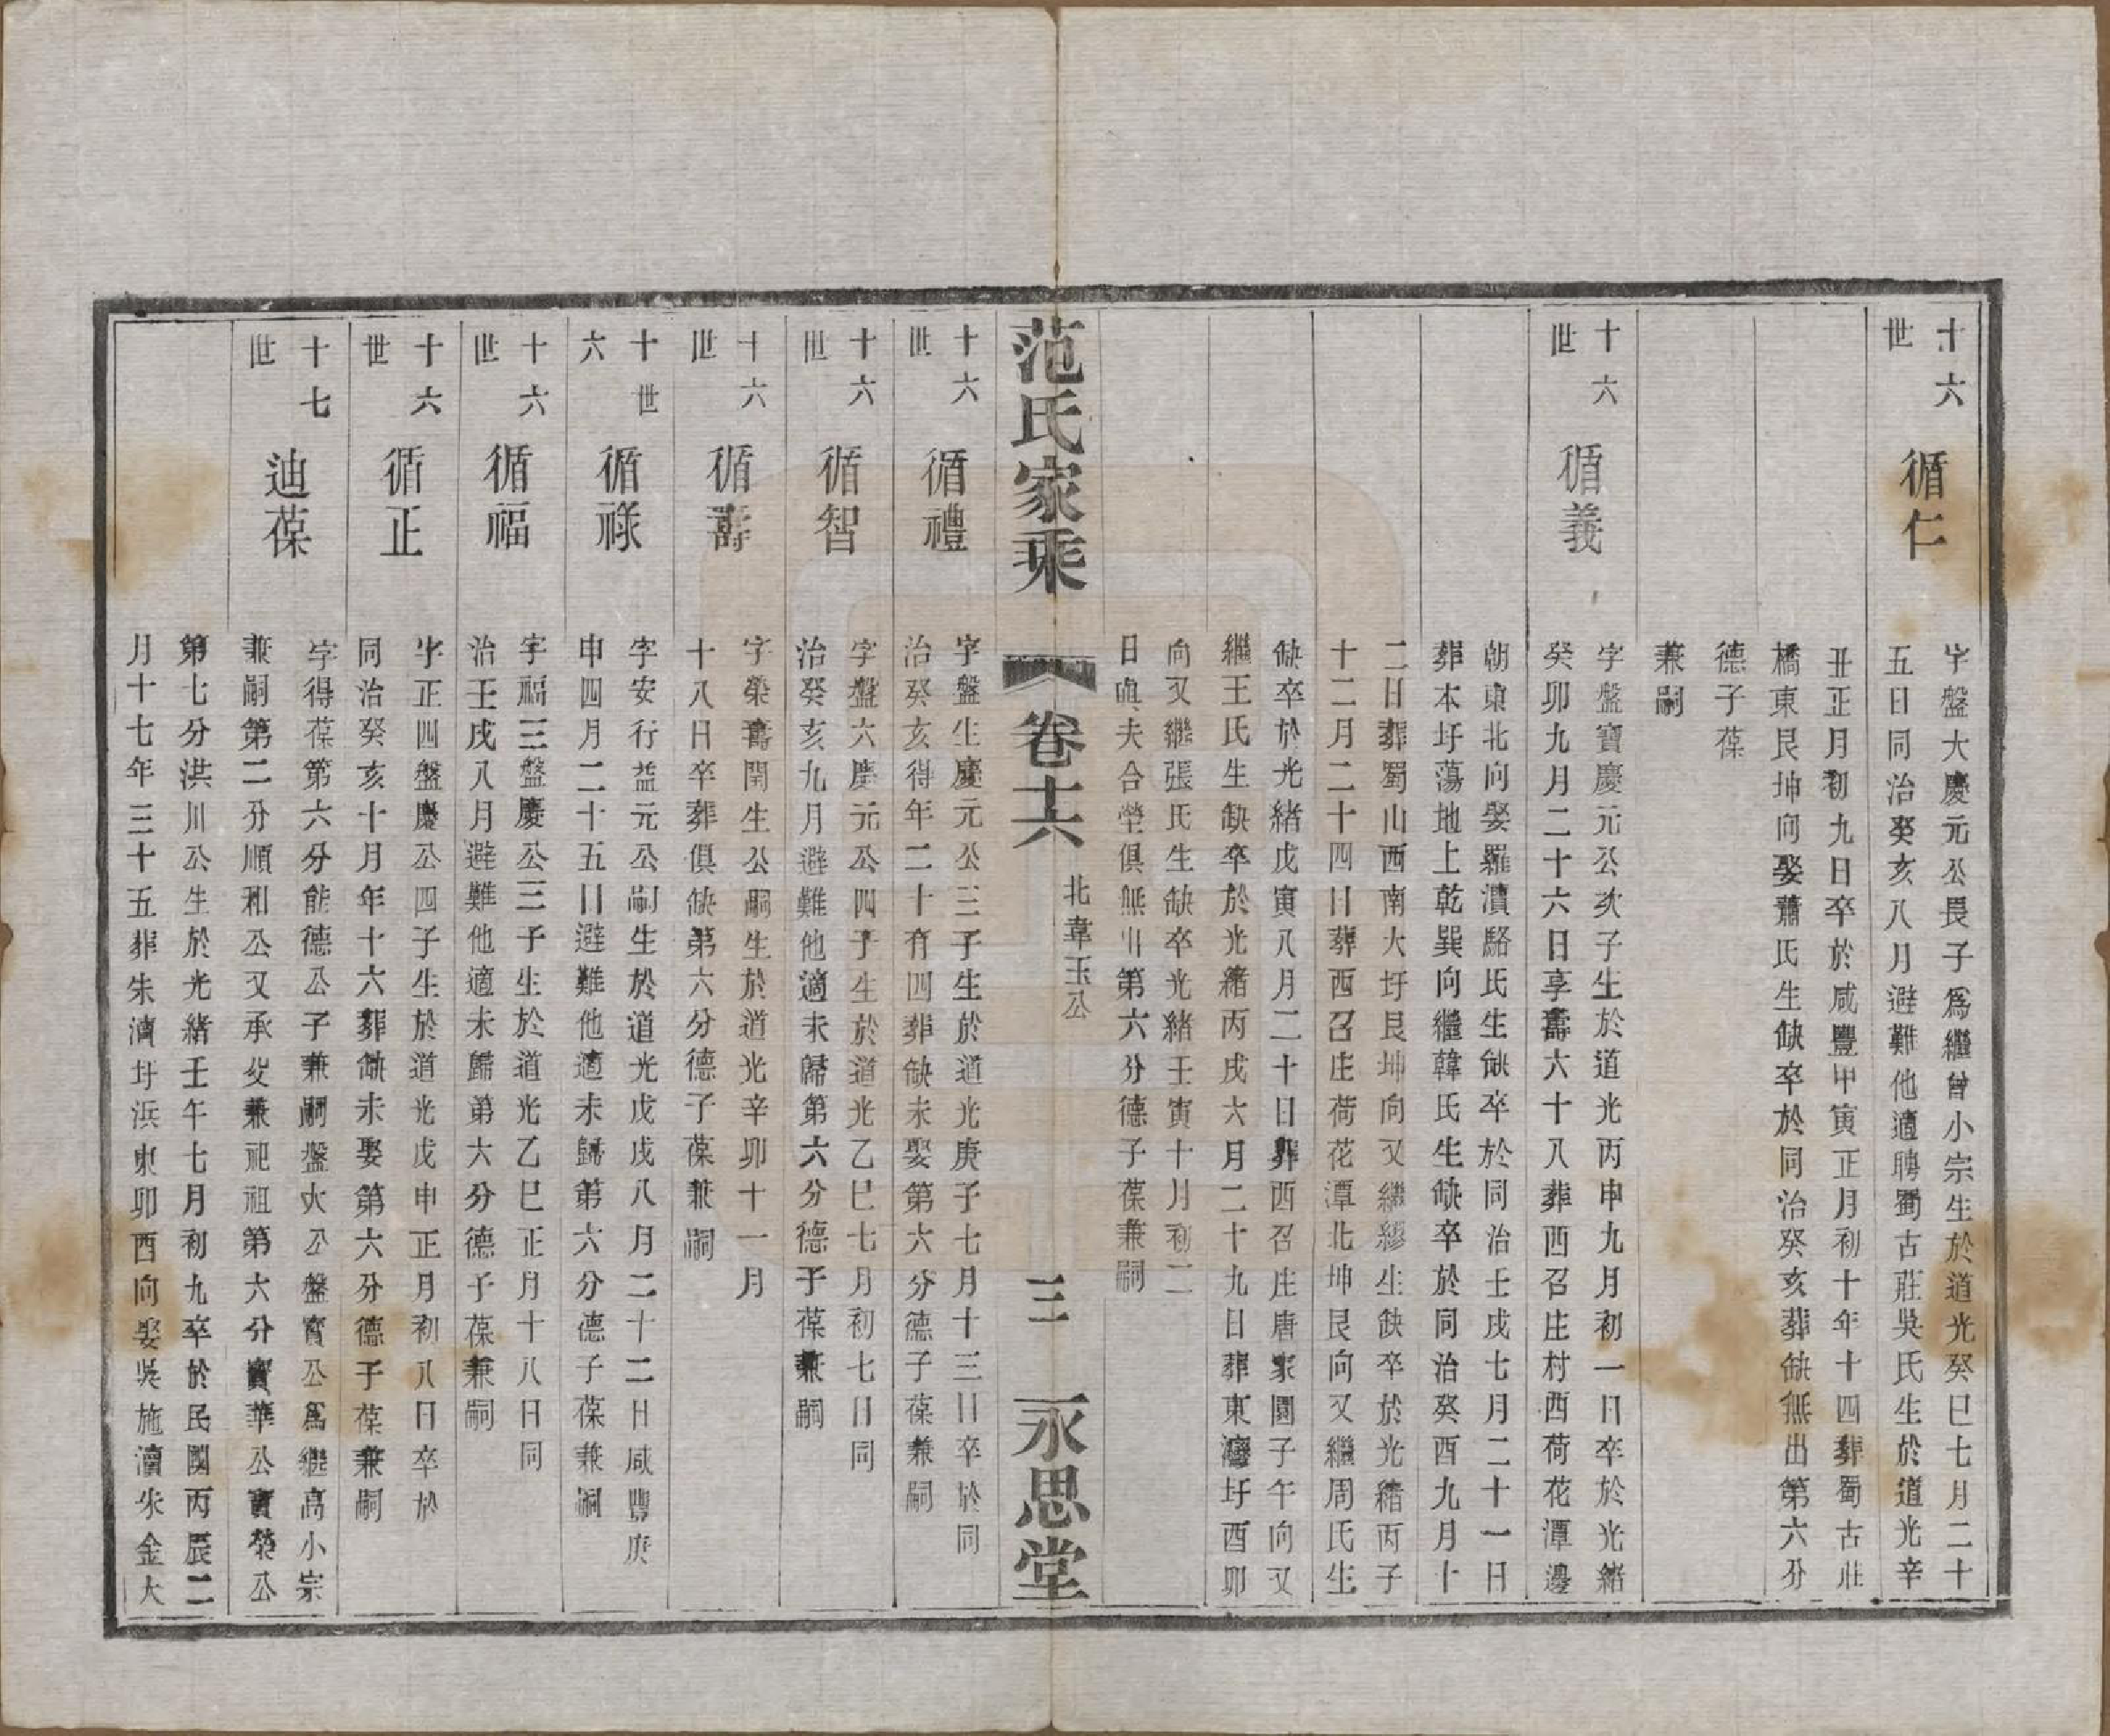 十六世
循仁
字盤大慶元公長子為繼曾小宗生於道光癸巳七月二十
五日同治癸亥八月避難他適聘蜀古莊吳氏生於道光辛
丑正月初九日卒於咸豐甲寅正月初十年十四葬蜀古莊
橋東艮坤向娶蕭氏生缺卒於同治癸亥葬缺無出第六分
德子葆
兼嗣
十六世
循義
字盤寶慶元公次子生於道光丙申九月初一日卒於光緒
癸卯九月二十六日享壽六十八葬西召庄村西荷花潭邊
朝東北向娶羅瀆駱氏生缺卒於同治壬戌七月二十一日
葬本圩蕩地上乾巽向繼韓氏生缺卒於同治癸酉九月十
二日葬蜀山西南大圩艮坤向又繼繆生缺卒於光緒丙子
十二月二十四日葬西召庄荷花潭北坤艮向又繼周氏生
缺卒於光緒戊寅八月二十日葬西召庄唐家園子午向又
繼王氏生缺卒於光緒丙戌六月二十九日葬東灣圩酉卯
向又繼張氏生缺卒光緒壬寅十月初二
日與夫合塋俱無出第六分德子葆兼嗣
范氏家乘
卷十六
北韋玉公
三
永思堂
十六世
循禮
字盤生慶元公三子生於道光庚子七月十三日卒於同
治癸亥得年二十有四葬缺未娶第六分德子葆兼嗣
十六世
循智
字盤六慶元公四子生於道光乙巳七月初七日同
治癸亥九月避難他適未歸第六分德子葆兼嗣
十六世
循壽
字榮壽開生公嗣生於道光辛卯十一月
十八日卒葬俱缺第六分德子葆兼嗣
十六世
循祿
字安行益元公嗣生於道光戊戌八月二十二日咸豐庚
申四月二十五日避難他適未歸第六分德子葆兼嗣
十六世
循福
字福三盤慶公三子生於道光乙巳正月十八日同
治壬戌八月避難他適未歸第六分德子葆兼嗣
十六世
循正
字正四盤慶公四子生於道光戊申正月初八日卒於
同治癸亥十月年十六葬缺未娶第六分德子葆兼嗣
十七世
迪葆
字得葆第六分能德公子兼嗣盤大公盤寶公爲繼高小宗
兼嗣第二分順和公又承父兼祀祖第六分寶華公寶榮公
第七分洪川公生於光緒壬午七月初九卒於民國丙辰二
月十七年三十五葬朱瀆圩浜東卯酉向娶吳施瀆朱金大